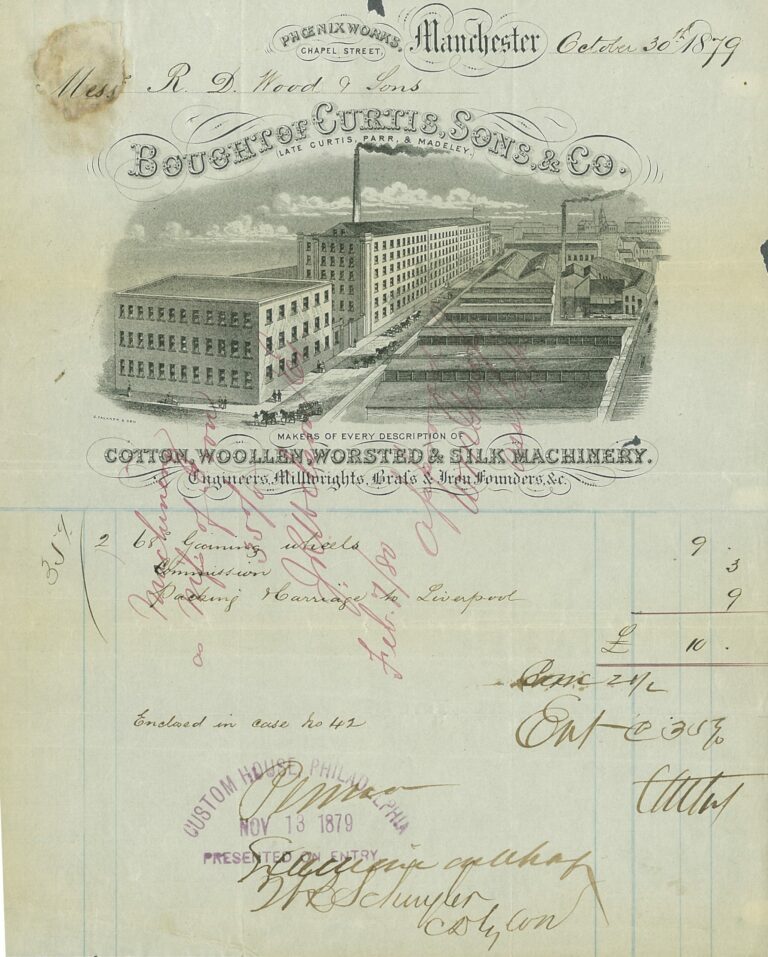 PHŒNIX WORKS,
CHAPEL STREET,
Manchester October 30th 1879
Messrs R. D. Wood & Sons
BOUGHT OF CURTIS, SONS, & CO.
(LATE CURTIS, PARR, & MADELEY.)
MAKERS OF EVERY DESCRIPTION OF
COTTON, WOOLLEN, WORSTED & SILK MACHINERY.
Engineers, Millwrights, Brass & Iron Founders, &c.
35%
2 68 Gaining wheels 9 .
Commission 3
Packing & Carriage to Liverpool 9
£ 10 .
2 1/2
Enclosed in case No 42
Ent @ 35%
Machinery
as Mfs of iron
35%
Feb. 7/80
CUSTOM HOUSE, PHILADELPHIA
NOV 13 1879
PRESENTED ON ENTRY